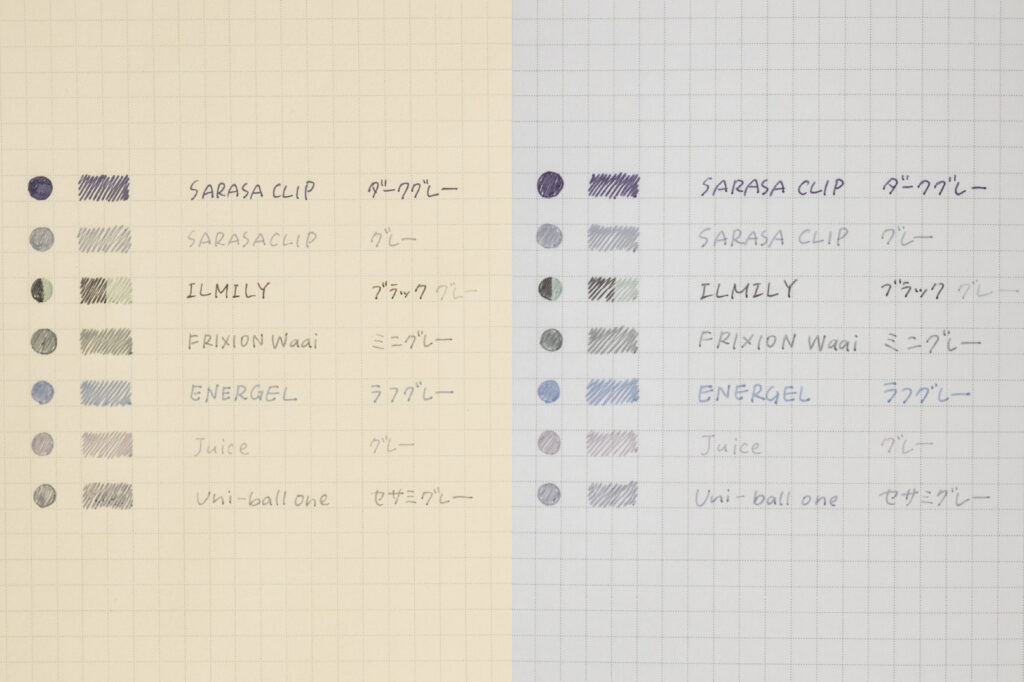 SARASA CLIP ダークグレー
SARASA CLIP グレー
ILMILY ブラック グレー
FRIXION Waai ミニグレー
ENERGEL ラフグレー
Juice グレー
Uni-ball one セサミグレー
SARASA CLIP ダークグレー
SARASA CLIP グレー
ILMILY ブラック グレー
FRIXION Waai ミニグレー
ENERGEL ラフグレー
Juice グレー
Uni-ball one セサミグレー